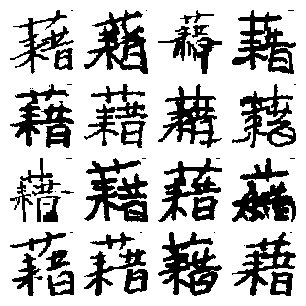 藉藉藉藉
藉藉藉藉
藉藉藉藉
藉藉藉藉